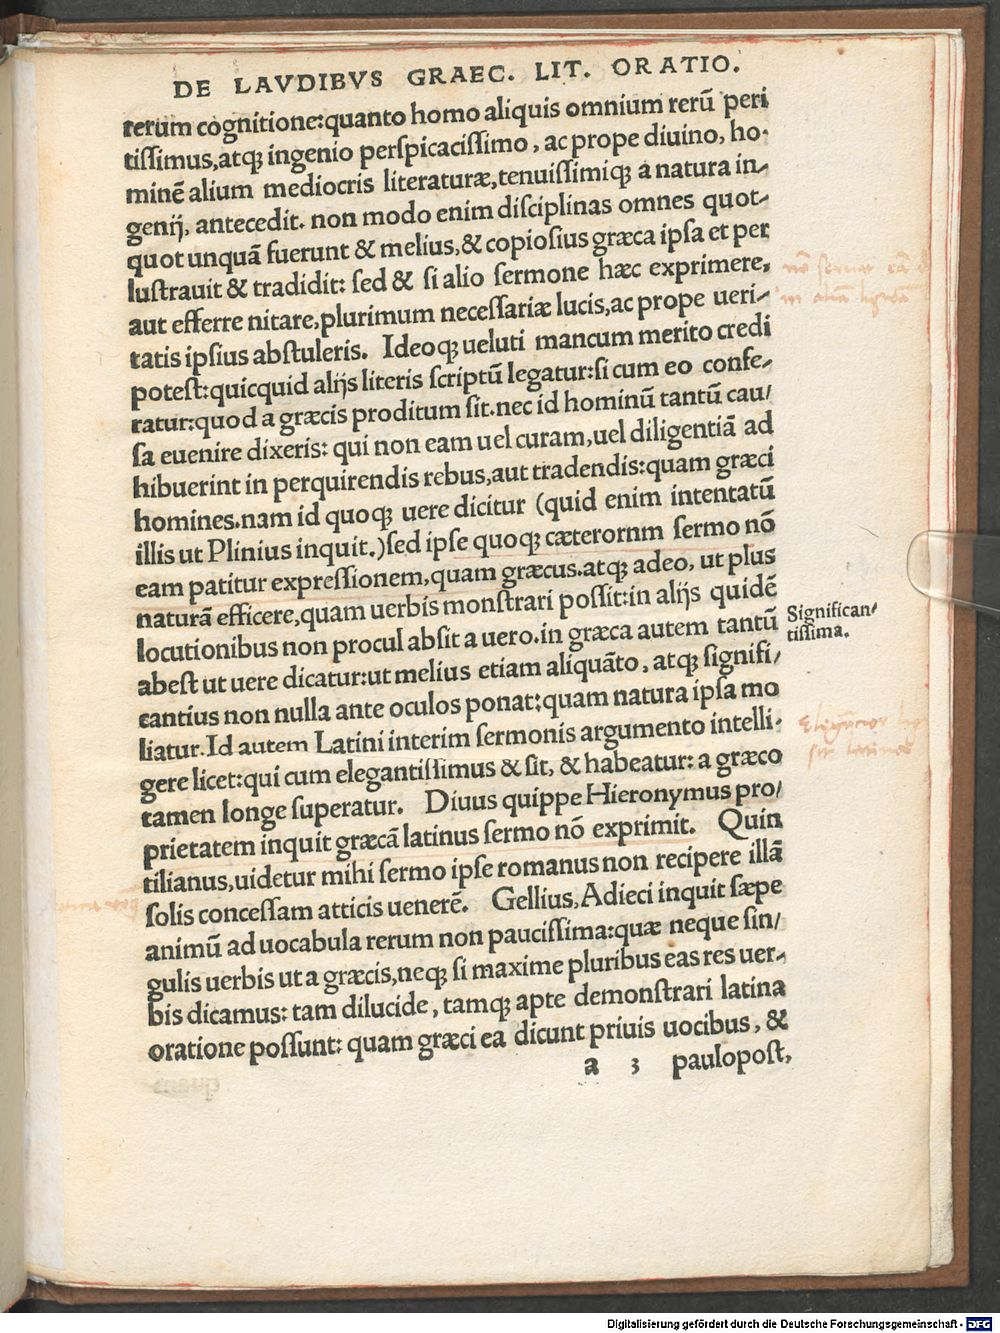 DE LAVDIBVS GRAEC. LIT. ORATIO.
rerum cognitione:quanto homo aliquis omnium rerũ peri
tissimus,atq; ingenio perspicacissimo, ac prope diuino, ho-
minẽ alium mediocris literaturæ,tenuissimiq; a natura in-
genij, antecedit. non modo enim disciplinas omnes quot-
quot unquã fuerunt & melius,& copiosius græca ipsa et per
lustrauit & tradidit: sed & si alio sermone hæc exprimere,
aut efferre nitare,plurimum necessariæ lucis,ac prope ueri-
tatis ipsius abstuleris. Ideoq; ueluti mancum merito credi
potest:quicquid alijs literis scriptũ legatur:si cum eo confe-
ratur:quod a græcis proditum sit.nec id hominũ tantũ cau/
sa euenire dixeris: qui non eam uel curam,uel diligentiã ad
hibuerint in perquirendis rebus,aut tradendis:quam græci
homines.nam id quoq; uere dicitur (quid enim intentatũ
illis ut Plinius inquit.)sed ipse quoq; cæterornm sermo nõ
eam patitur expressionem,quam græcus.atq; adeo, ut plus
naturã efficere,quam uerbis monstrari possit:in alijs quidẽ
locutionibus non procul absit a uero.in græca autem tantũ
abest ut uere dicatur:ut melius etiam aliquãto, atq; signifi/
cantius non nulla ante oculos ponat:quam natura ipsa mo
liatur.Id autem Latini interim sermonis argumento intelli-
gere licet:qui cum elegantissimus & sit, & habeatur: a græco
tamen longe superatur. Diuus quippe Hieronymus pro/
prietatem inquit græcã latinus sermo nõ exprimit. Quin
tilianus,uidetur mihi sermo ipse romanus non recipere illã
solis concessam atticis uenerẽ. Gellius, Adieci inquit sæpe
animũ ad uocabula rerum non paucissima:quæ neque sin/
gulis uerbis ut a græcis,neq; si maxime pluribus eas res uer-
bis dicamus: tam dilucide, tamq; apte demonstrari latina
oratione possunt: quam græci ea dicunt priuis uocibus, &
a 3 paulopost,
Significan/
tissima.
Digitalisierung gefördert durch die Deutsche Forschungsgemeinschaft - DFG